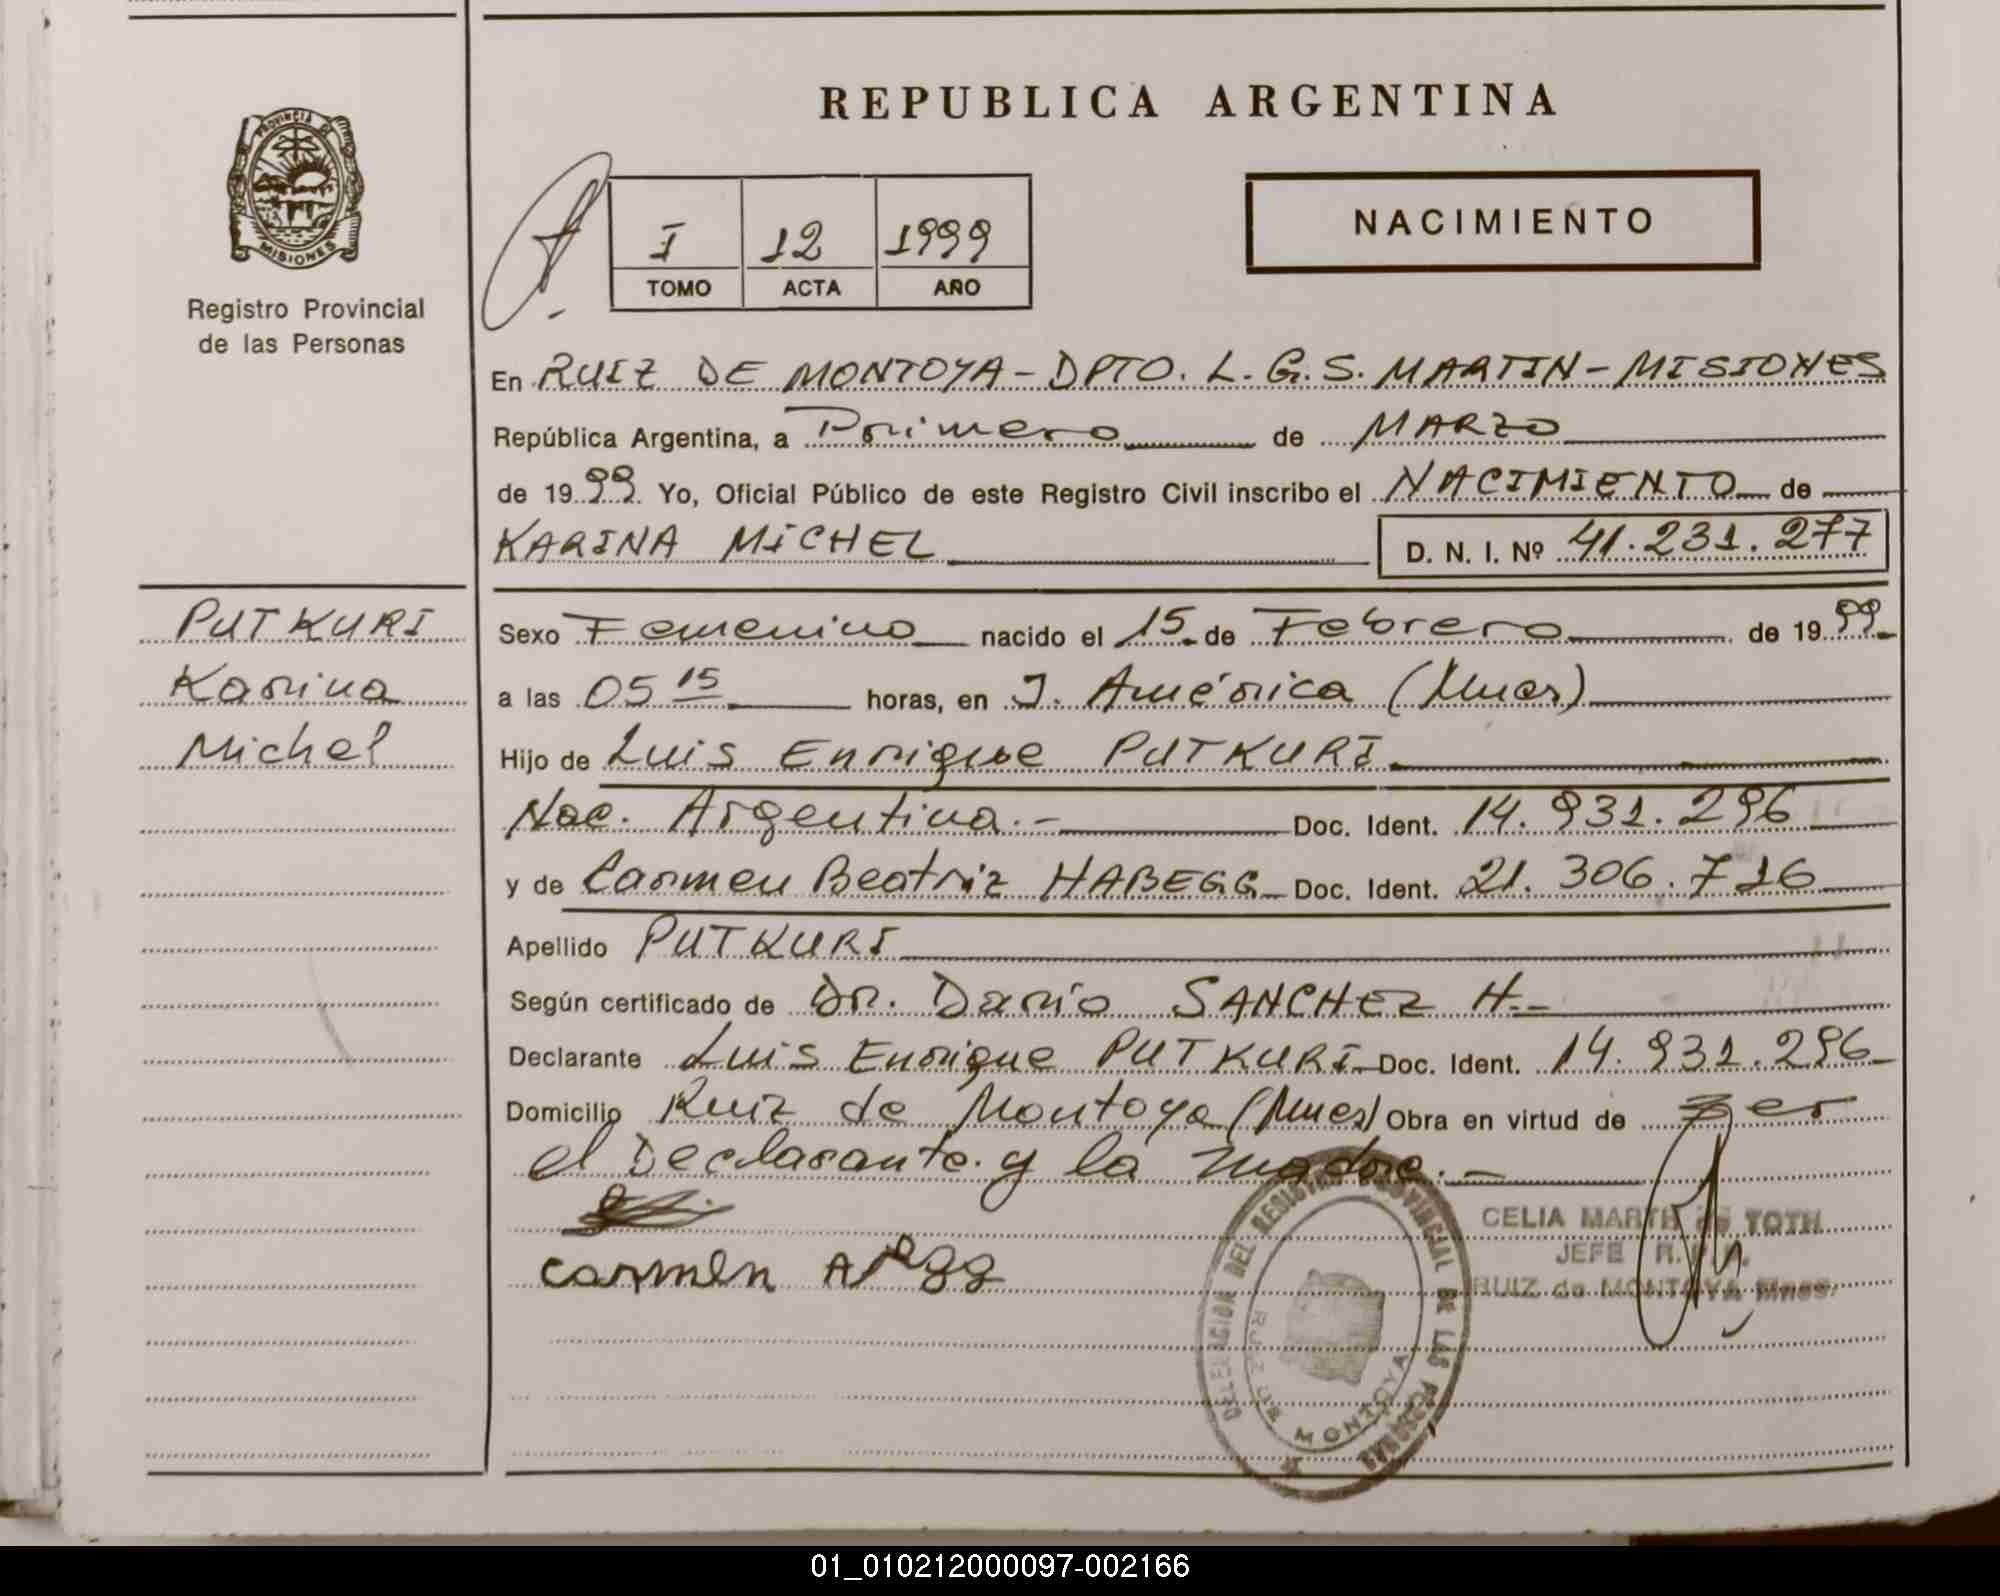 REPUBLICA ARGENTINA
PROVINCIA DE
MISIONES
Registro Provincial
de las Personas
I 12 1999
TOMO ACTA AÑO
NACIMIENTO
En RUIZ DE MONTOYA - DPTO. L. G. S. MARTIN - MISIONES
República Argentina, a Primero de MARZO
de 1999 Yo, Oficial Público de este Registro Civil inscribo el NACIMIENTO de
KARINA MICHEL D. N. I. Nº 41.231.277
PUTKURI
Karina
Michel
Sexo Femenino nacido el 15 de Febrero de 1999
a las 05 15 horas, en J. América (Mnes)
Hijo de Luis Enrique PUTKURI
Nac. Argentina.- Doc. Ident. 14.931.296
y de Carmen Beatriz HABEGG Doc. Ident. 21.306.716
Apellido PUTKURI
Según certificado de Dr. Darío SANCHEZ H.-
Declarante Luis Enrique PUTKURI Doc. Ident. 14.931.296
Domicilio Ruiz de Montoya (Mnes) Obra en virtud de ser
el Declarante y la madre.-
CELIA MARTA de TOTH
JEFE R.P.P.
RUIZ de MONTOYA Mnes
Carmen
DELEGACION DEL REGISTRO PROVINCIAL DE LAS PERSONAS
RUIZ DE MONTOYA
01_010212000097-002166